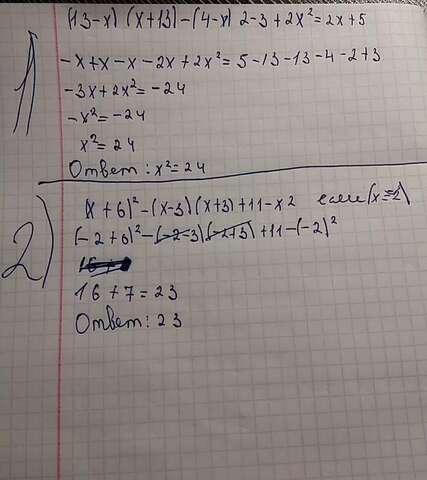 1)
(13-x) (x+13) - (4-x) 2-3+2x² = 2x+5
-x+x-x-2x+2x² = 5-13-13-4-2+3
-3x+2x² = -24
-x² = -24
x² = 24
Ответ: x² = 24
2)
(x+6)² - (x-3)(x+3)+11-x2 если (x=-2)
(-2+6)² - (-2-3)(-2+3)+11-(-2)²
16+7=23
Ответ: 23